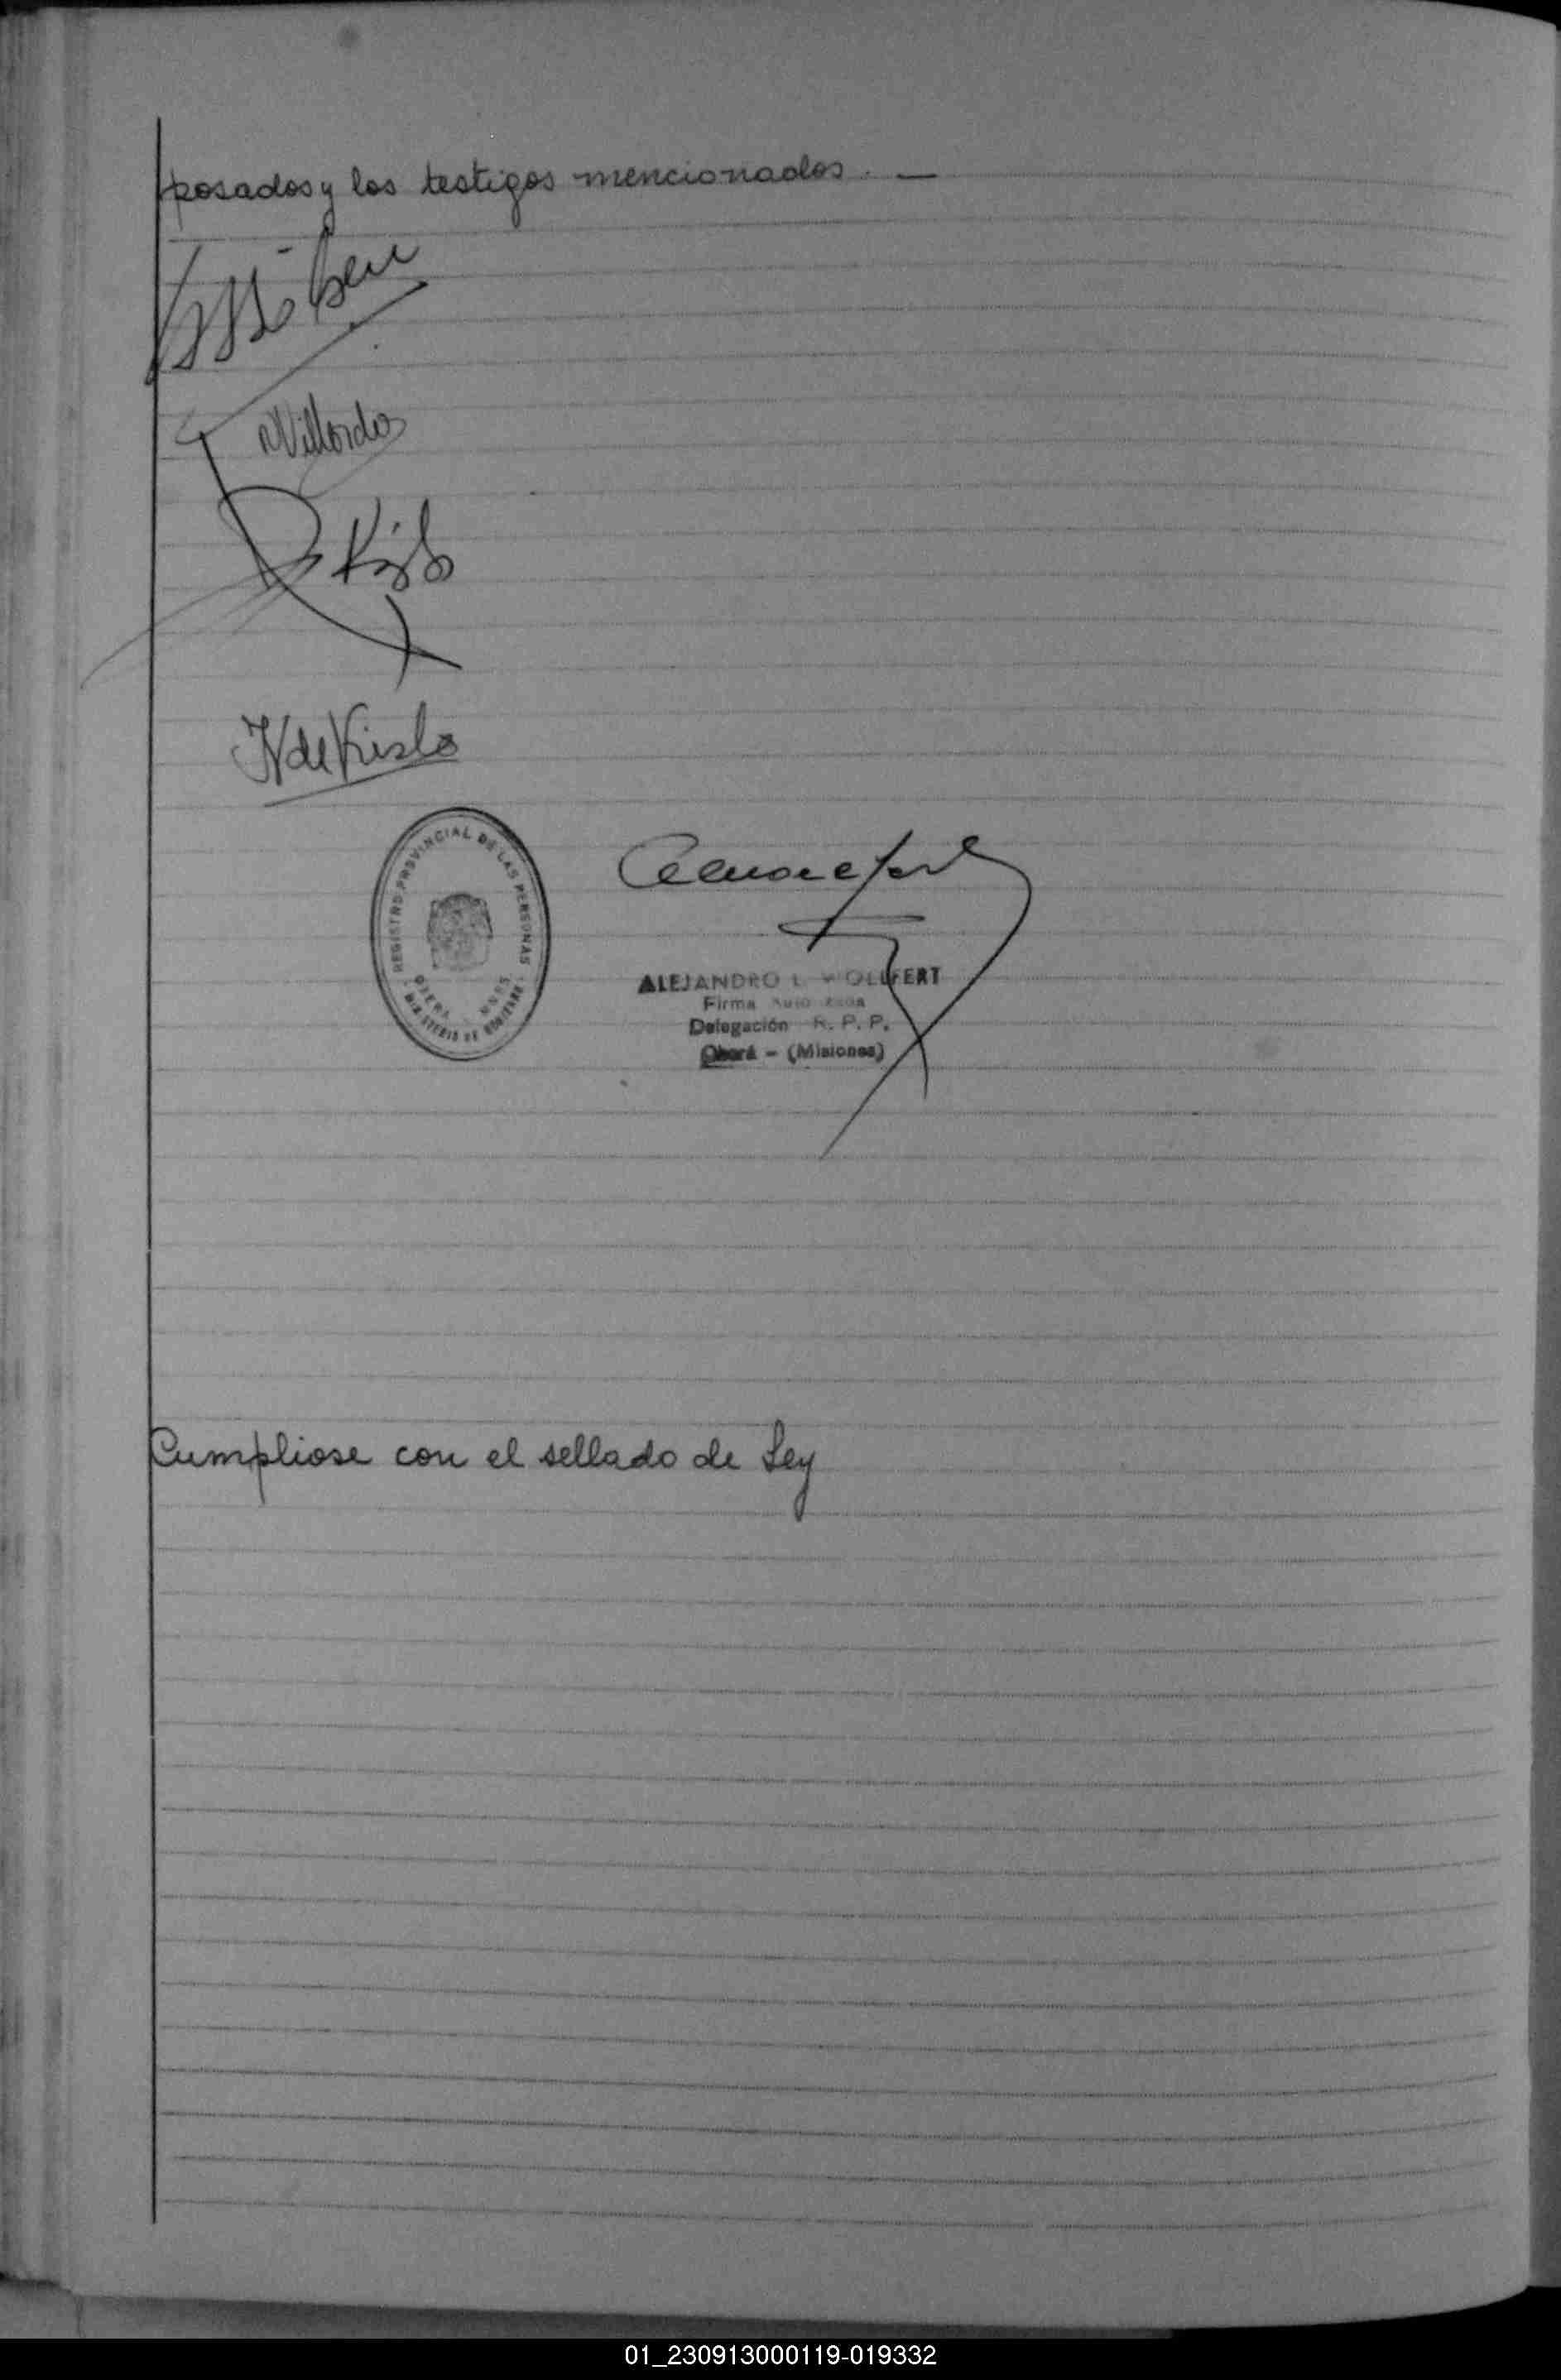 posados y los testigos mencionados. —
Villordo
N de Kislo
REGISTRO PROVINCIAL DE LAS PERSONAS
OBERA MNES.
MINISTERIO DE GOBIERNO
ALEJANDRO L. WOLLFERT
Firma Autorizada
Delegación R. P. P.
Oberá - (Misiones)
Cumpliose con el sellado de Ley
01_230913000119-019332